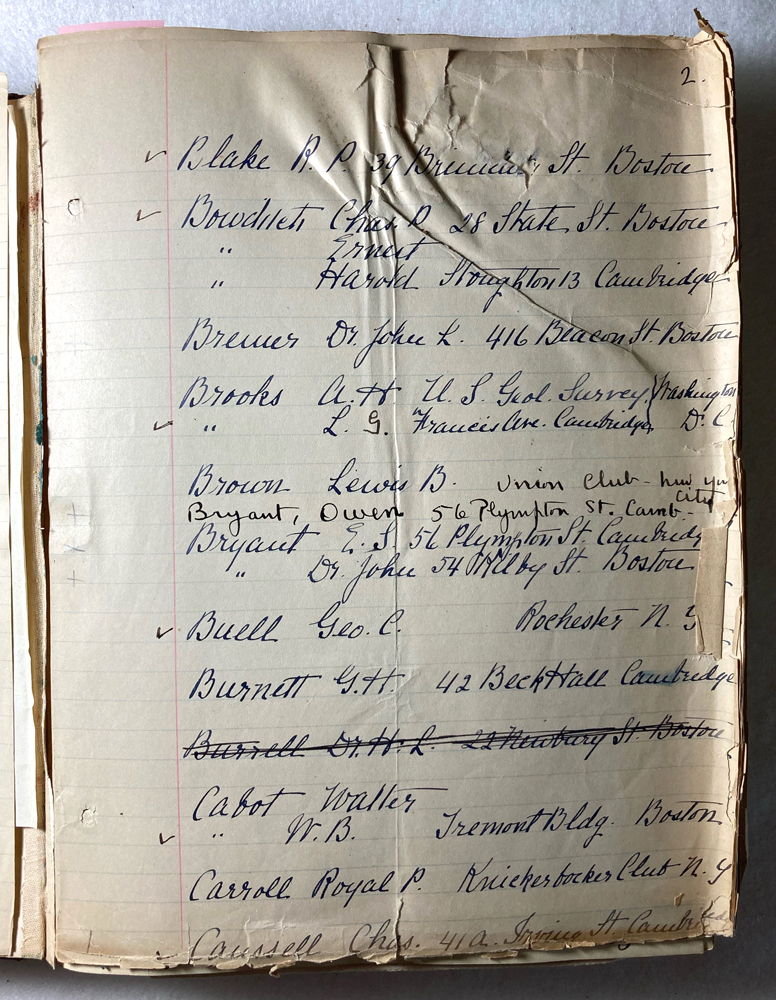 2.
Blake R. P. 39 Brimmer St. Boston
Bowditch Chas. P. 28 State St. Boston
" Ernest
" Harold Stoughton 13 Cambridge
Bremer Dr. John L. 416 Beacon St. Boston
Brooks A. H. U. S. Geol. Survey, Washington
" L. G. Francis Ave. Cambridge D. C.
Brown Lewis B. Union Club - New
City
Bryant, Owen 56 Plympton St. Camb-
Bryant E. S. 56 Plympton St. Cambridge
" Dr. John 54 St. Boston
Buell Geo. C. Rochester N. Y
Burnett G. H. 42 Beck Hall Cambridge
Burrell Dr. H. L. 22 Newbury St Boston
Cabot Walter
" W. B. Tremont Bldg. Boston
Carroll Royal P. Knickerbocker Club N. Y
Chas. 41 A. Irving St. Cambridge